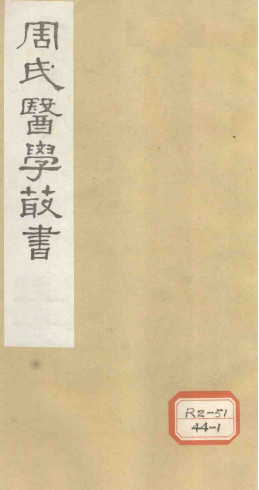 周氏醫學叢書
R2-51
44-1